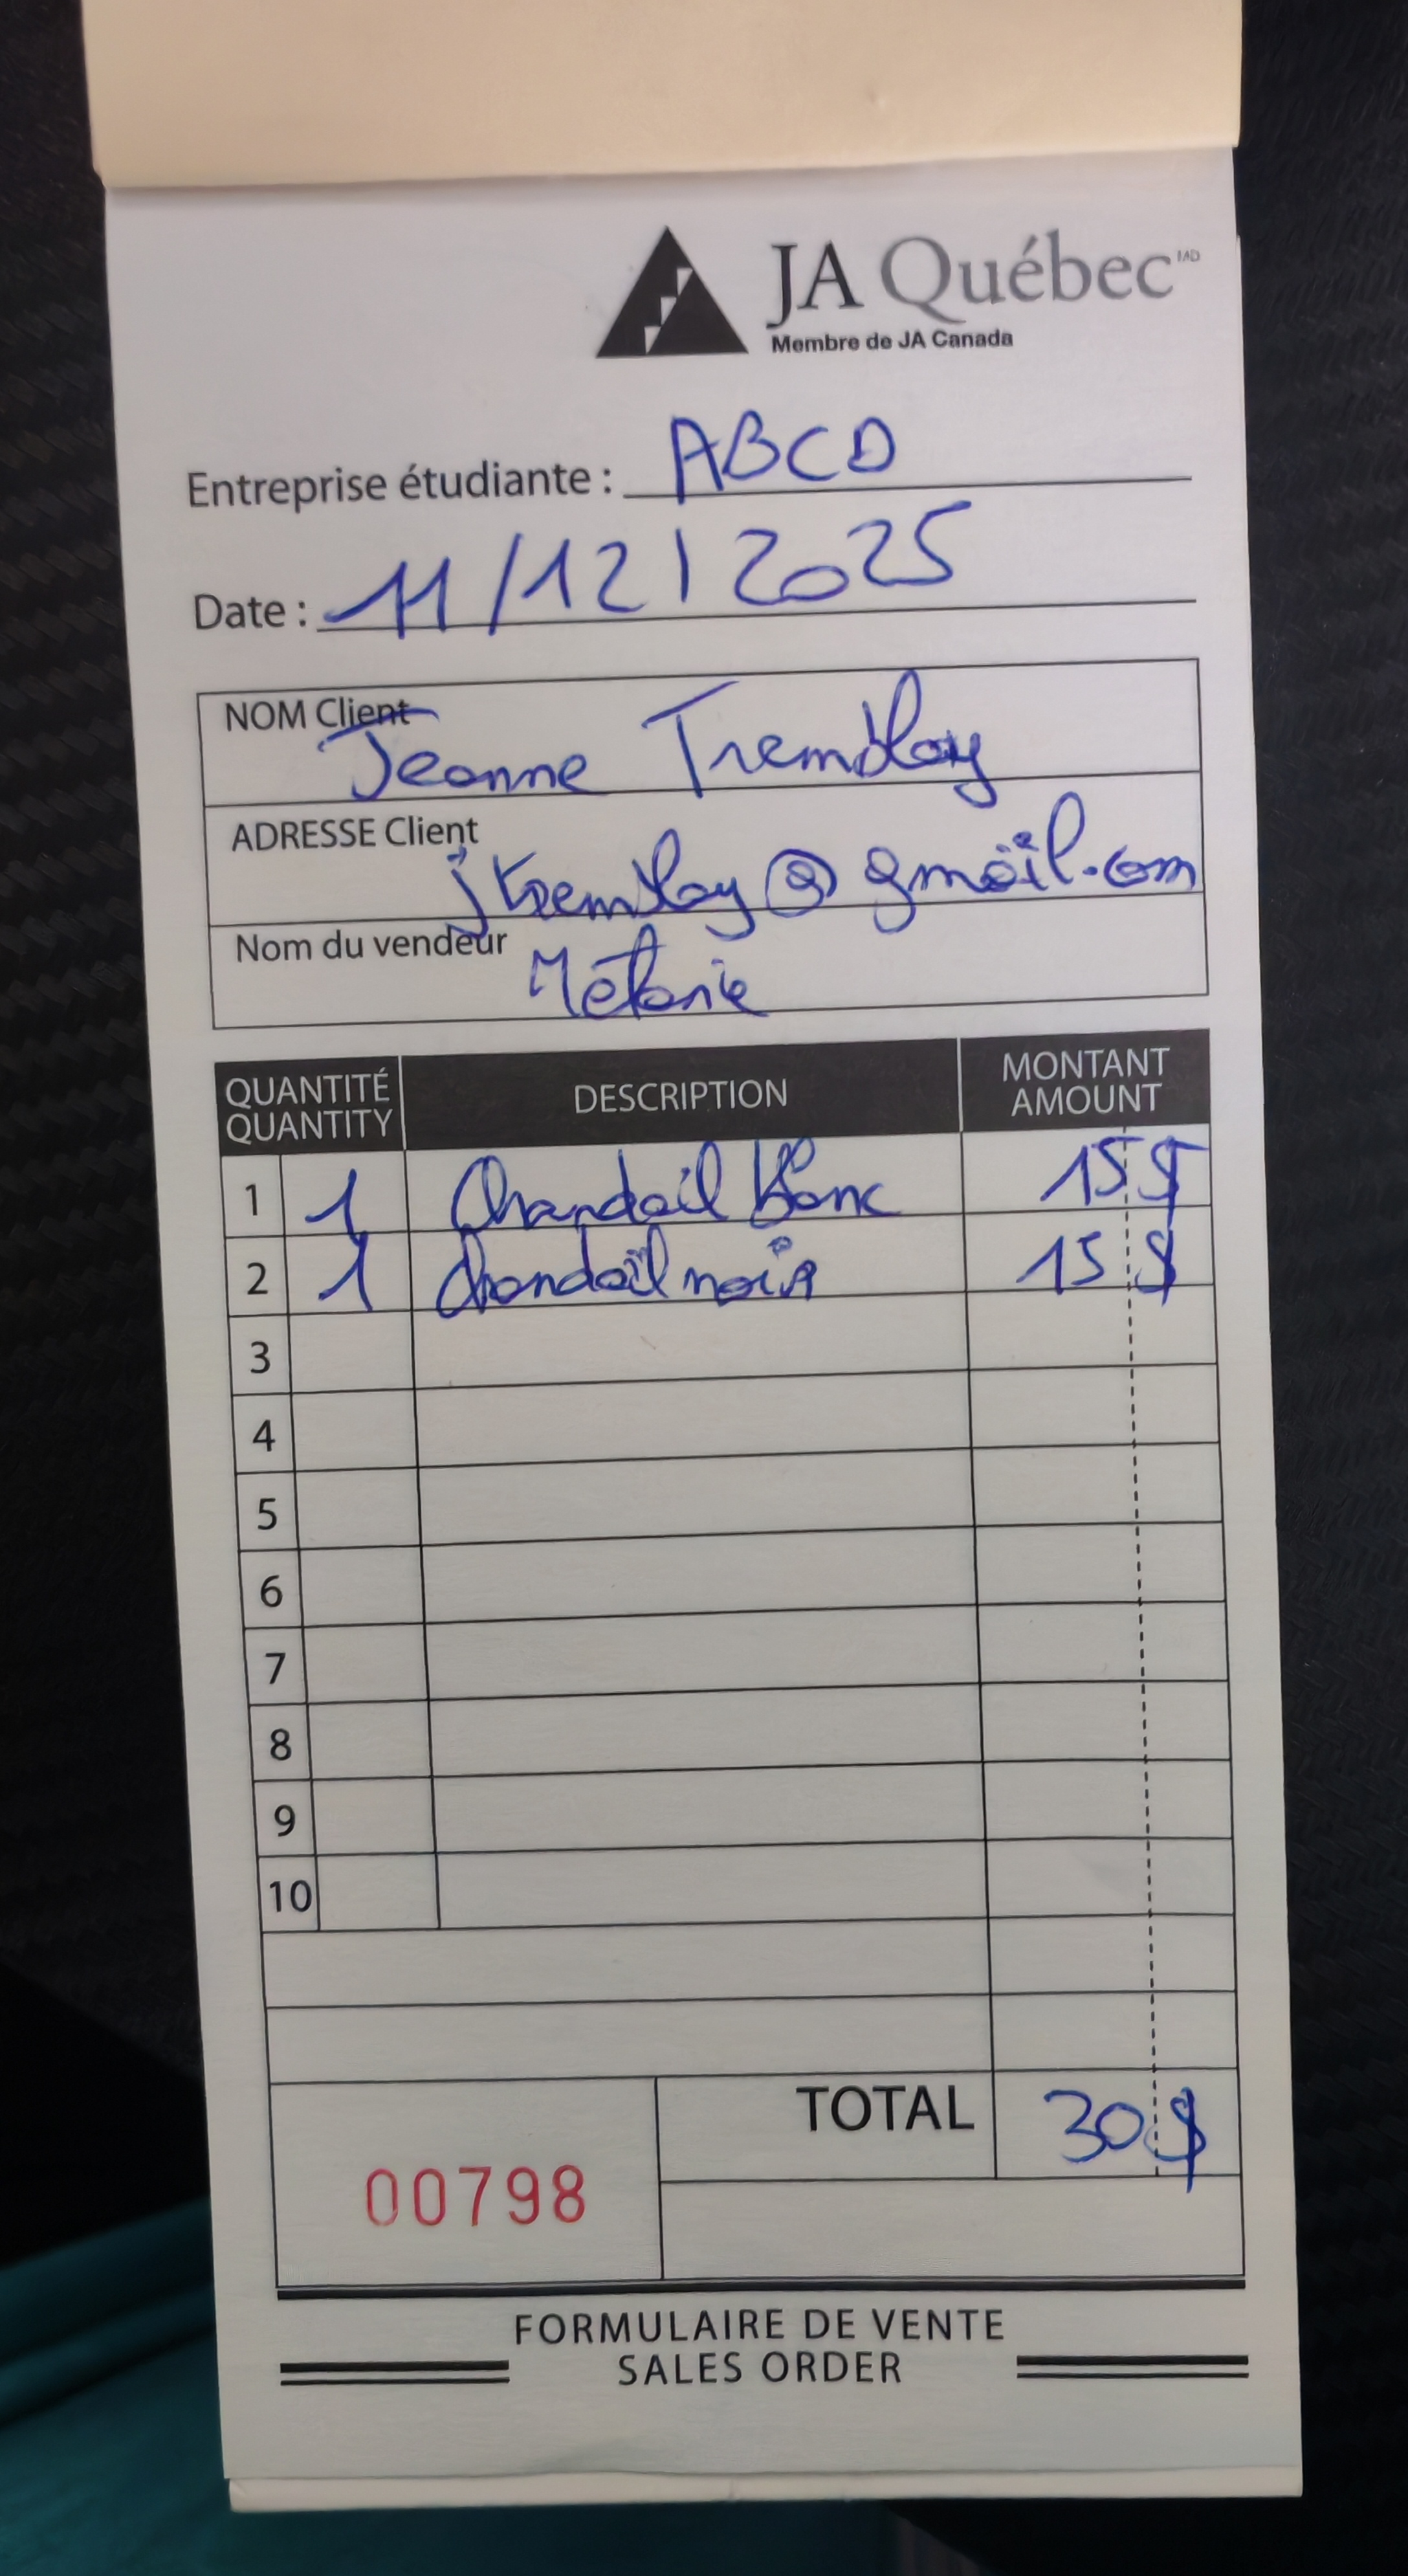 JA Québec MD
Membre de JA Canada
Entreprise étudiante : ABCD
Date : 11/12/2025
NOM Client
Jeanne Tremblay
ADRESSE Client
jtremblay@gmail.com
Nom du vendeur
Mélanie
QUANTITÉ QUANTITY DESCRIPTION MONTANT AMOUNT
1 1 Chandail blanc 15 $
2 1 Chandail noir 15 $
3
4
5
6
7
8
9
10
TOTAL 30 $
00798
FORMULAIRE DE VENTE
SALES ORDER